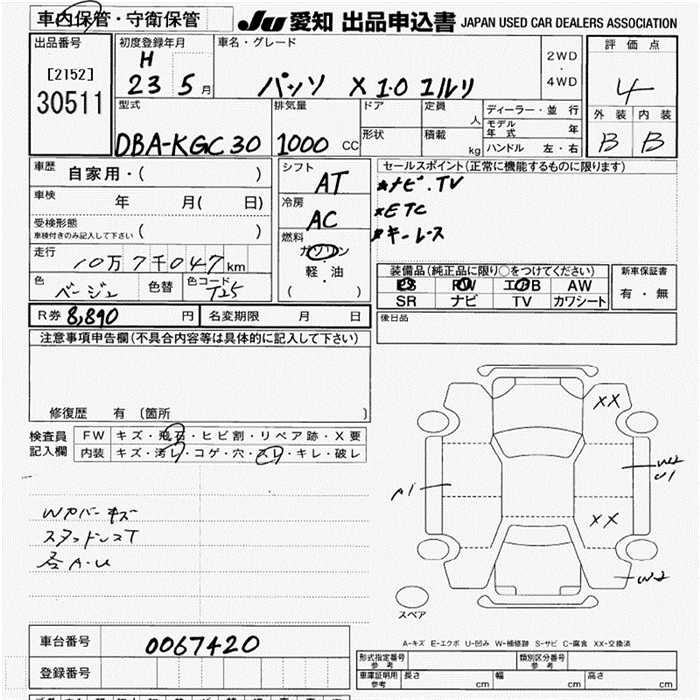 車内保管・守衛保管 JU 愛知 出品申込書 JAPAN USED CAR DEALERS ASSOCIATION
出品番号 初度登録年月 車名・グレード 2WD ・ 4WD 評価点
[2152] H
30511 23 5月 パッソ X 1.0 ユルリ 4
型式 排気量 ドア 定員 人 ディーラー・並行 外装 内装
モデル年式 年
DBA-KGC30 1000 CC 形状 積載 kg ハンドル 左・右 B B
車歴 自家用・( ) シフト AT セールスポイント(正常に機能するものに限ります)
車検 年 月( 日) 冷房 AC *ナビ.TV
受検形態 *ETC
車検付きのみ記入して下さい ( ) 燃料 *キーレス
走行 10万7千047km ガソリン
軽・油
色 ベージュ 色替 色コード T25 ( )
装備品(純正品に限り○をつけてください) 新車保証書
PS PW エアB AW 有・無
SR ナビ TV カワシート
R券 8,890 円 名変期限 月 日 後日品
注意事項申告欄(不具合内容等は具体的に記入して下さい)
修復歴 有 (箇所 )
検査員 FW キズ・飛石・ヒビ割・リペア跡・X要
記入欄 内装 キズ・汚レ・コゲ・穴・スレ・キレ・破レ
XX
W2
U1
A1
XX
W2
Wカバーキズ
各A・U
スペア
A-キズ E-エクボ U-凹み W-補修跡 S-サビ C-腐食 XX-交換済
車台番号 0067420
登録番号
形式指定番号 参考 類別区分番号 参考
車庫証明用 参考 長さ cm 幅 cm 高さ cm